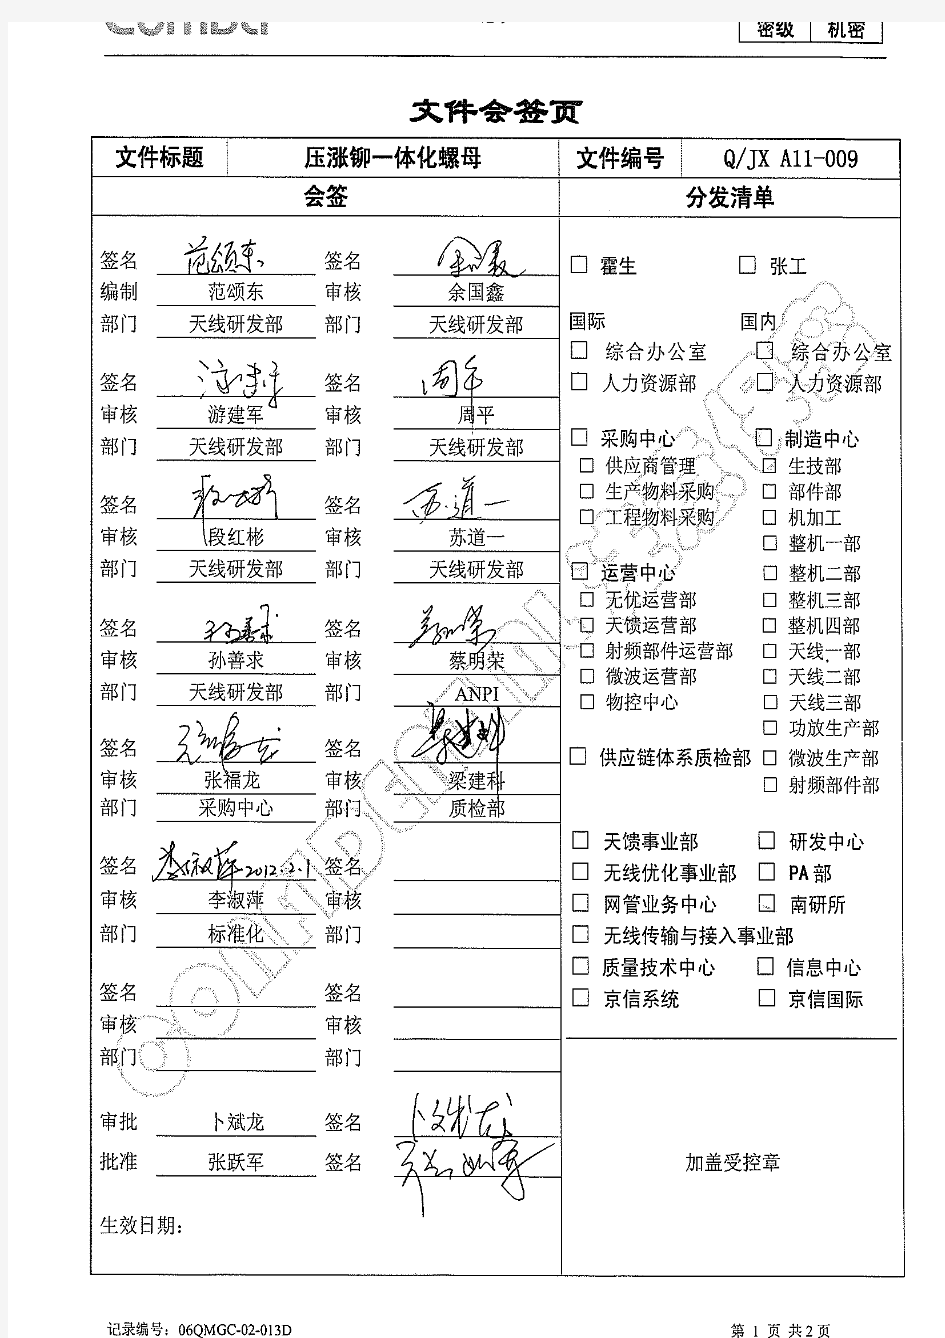 密级 机密
文件会签页
文件标题 压涨铆一体化螺母 文件编号 Q/JX A11-009
会签 分发清单
签名 范颂东 签名
编制 范颂东 审核 余国鑫
部门 天线研发部 部门 天线研发部
签名 签名 周平
审核 游建军 审核 周平
部门 天线研发部 部门 天线研发部
签名 签名 苏道一
审核 段红彬 审核 苏道一
部门 天线研发部 部门 天线研发部
签名 孙善求 签名
审核 孙善求 审核 蔡明荣
部门 天线研发部 部门 ANPI
签名 签名 梁建科
审核 张福龙 审核 梁建科
部门 采购中心 部门 质检部
签名 李淑萍 2012.2.1 签名
审核 李淑萍 审核
部门 标准化 部门
签名 签名
审核 审核
部门 部门
审批 卜斌龙 签名 卜斌龙
批准 张跃军 签名
生效日期:
□ 霍生 □ 张工
国际 国内
□ 综合办公室 □ 综合办公室
□ 人力资源部 □ 人力资源部
□ 采购中心 □ 制造中心
□ 供应商管理 □ 生技部
□ 生产物料采购 □ 部件部
□ 工程物料采购 □ 机加工
□ 整机一部
□ 运营中心 □ 整机二部
□ 无优运营部 □ 整机三部
□ 天馈运营部 □ 整机四部
□ 射频部件运营部 □ 天线一部
□ 微波运营部 □ 天线二部
□ 物控中心 □ 天线三部
□ 功放生产部
□ 供应链体系质检部 □ 微波生产部
□ 射频部件部
□ 天馈事业部 □ 研发中心
□ 无线优化事业部 □ PA部
□ 网管业务中心 □ 南研所
□ 无线传输与接入事业部
□ 质量技术中心 □ 信息中心
□ 京信系统 □ 京信国际
加盖受控章
记录编号: 06QMGC-02-013D 第 1 页 共2页